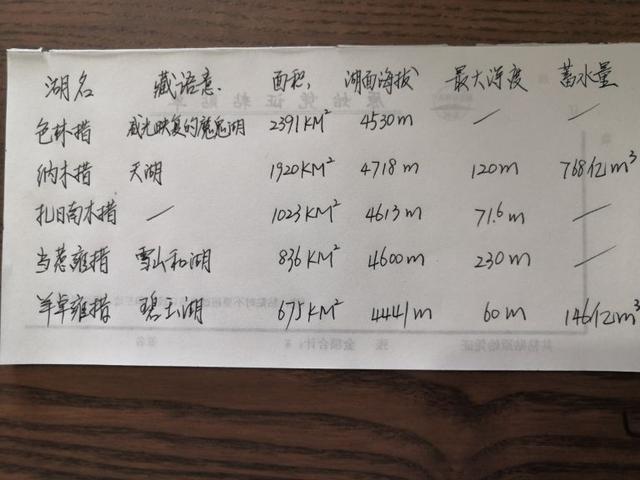 湖名 藏语意. 面积, 湖面海拔 最大深度 蓄水量
色林措 威光映复的魔鬼湖 2391KM² 4530m — —
纳木措 天湖 1920KM² 4718m 120m 768亿m³
扎日南木措 — 1023KM² 4613m 71.6m —
当惹雍措 雪山和湖 836KM² 4600m 230m —
羊卓雍措 碧玉湖 675KM² 4441m 60m 146亿m³